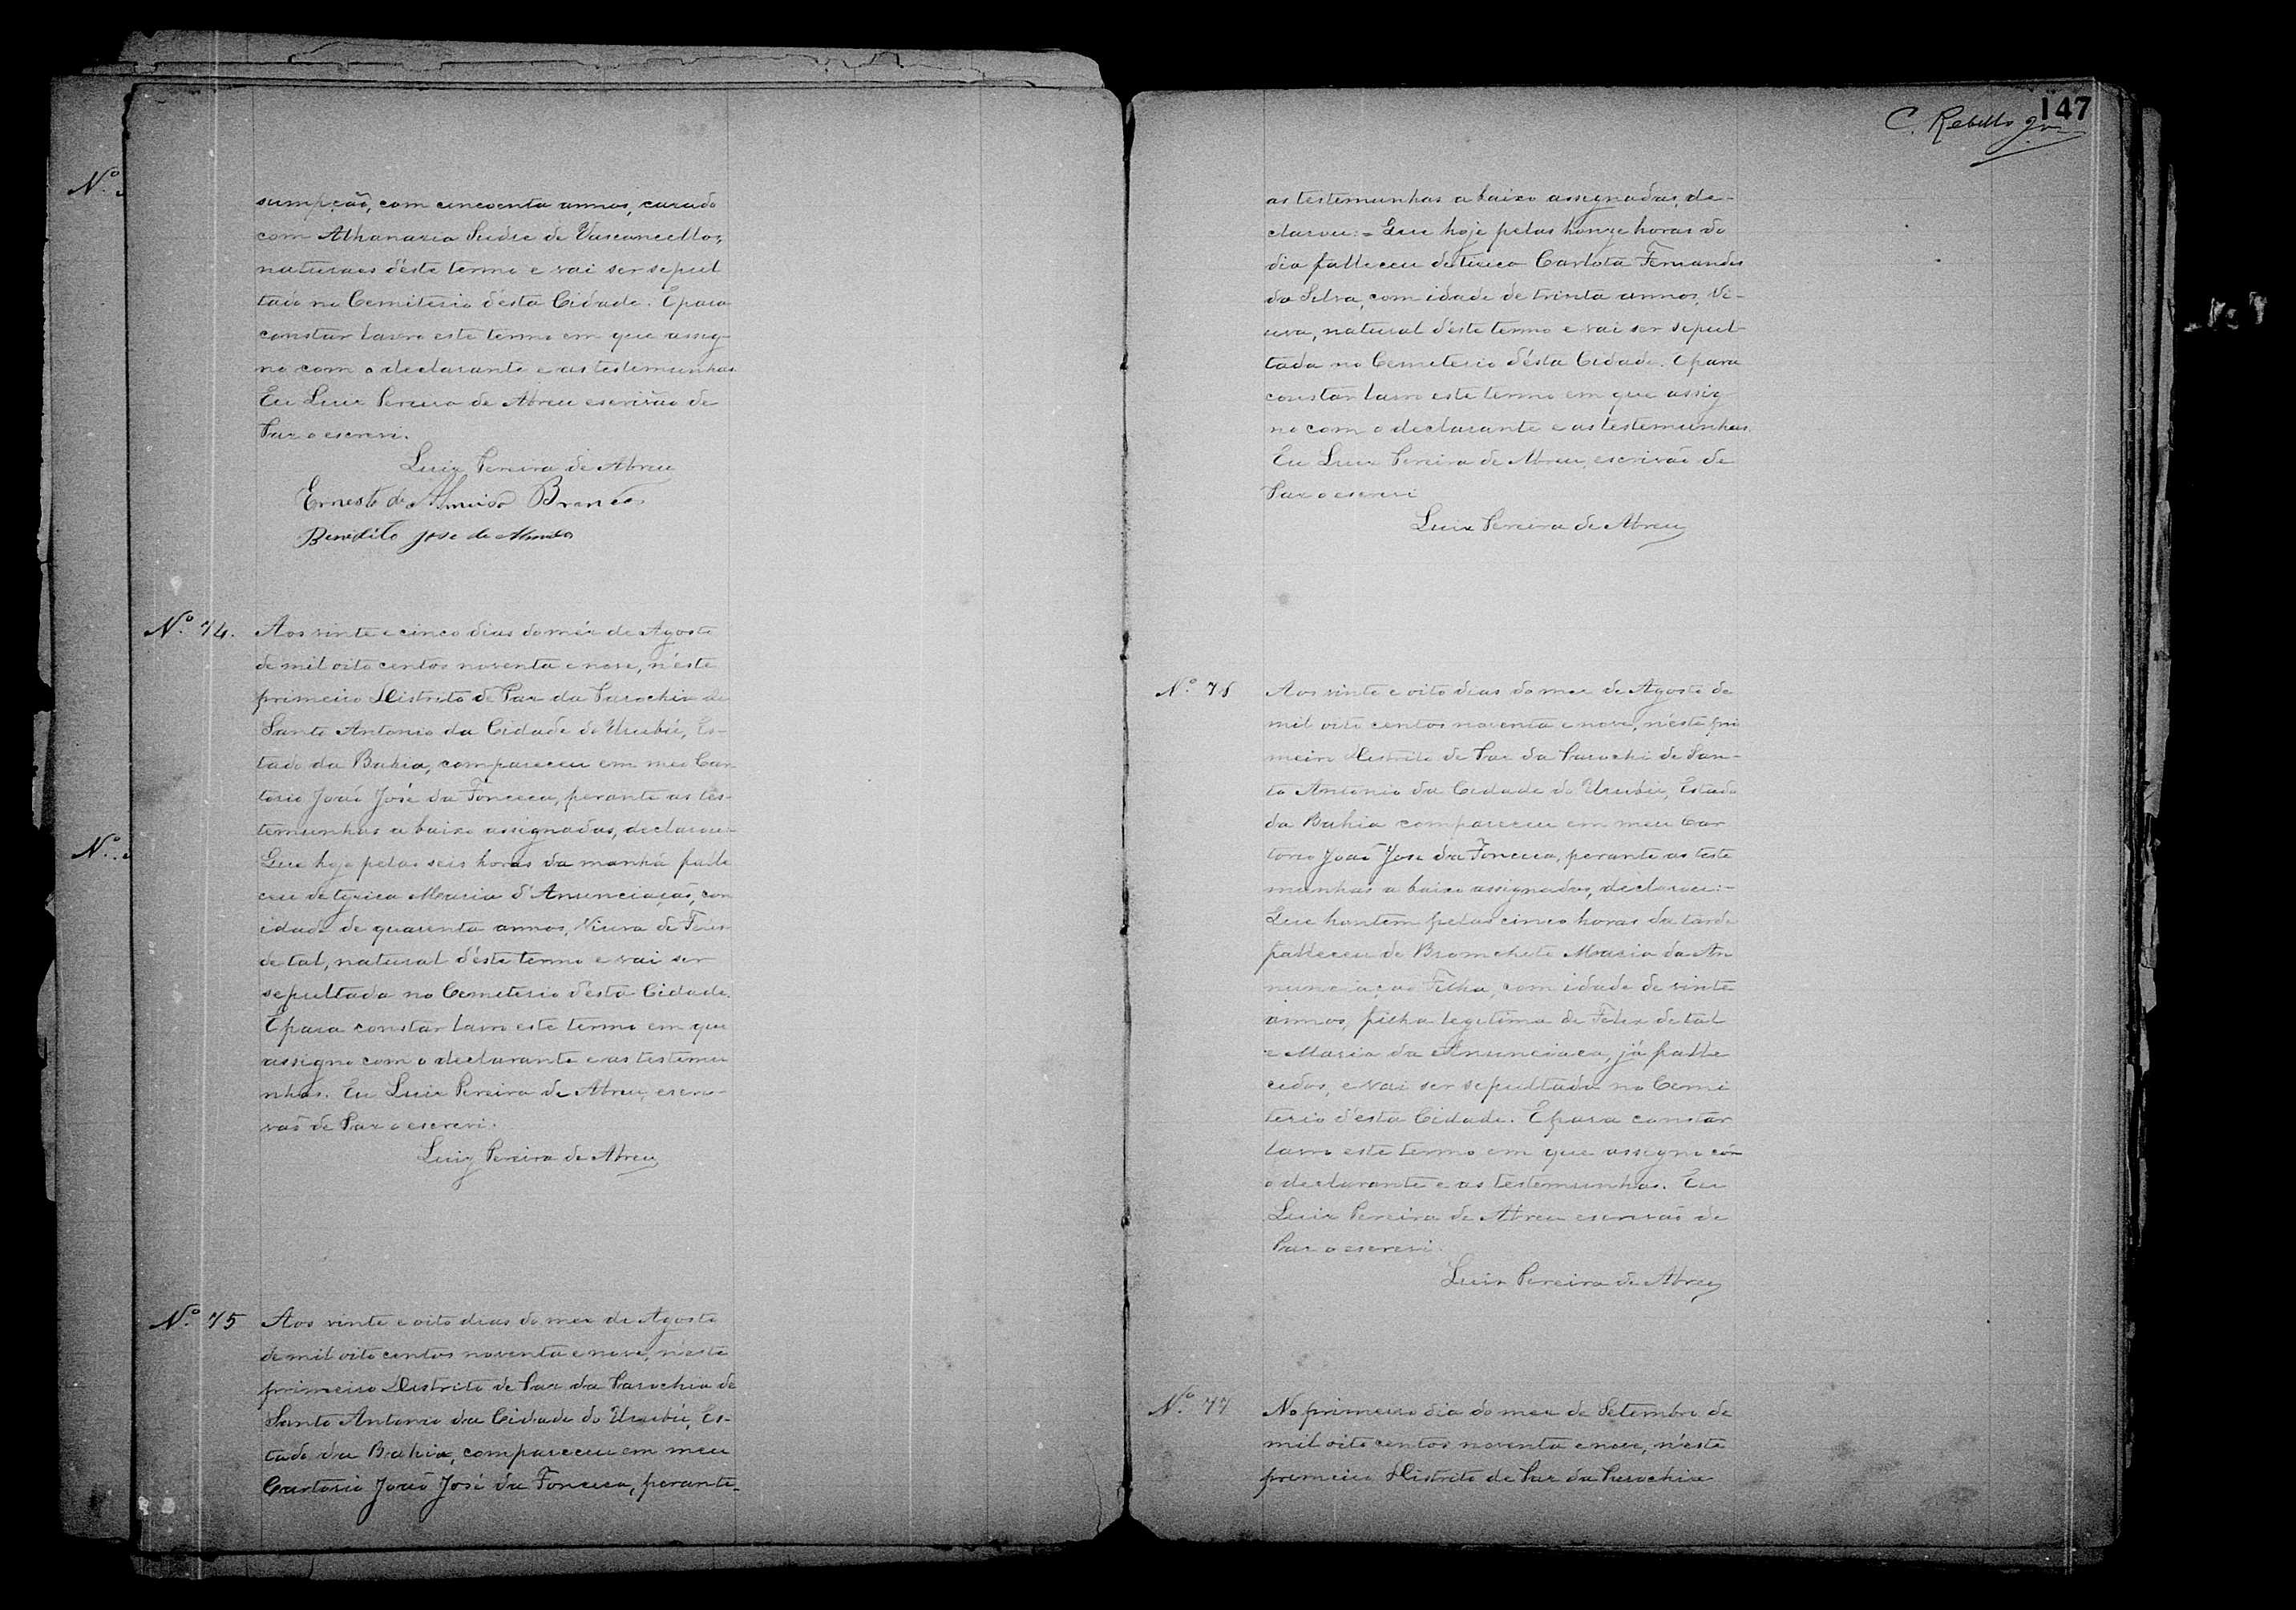 Nº
sumpção, com cincoenta annos, casado
com Athanazia de Vasconcellos,
naturaes d'éste termo e vai ser sepul
tado no Cemiterio d'ésta Cidade. E para
constar lavro este termo em que assig-
no com o declarante e as testemunhas.
Eu Luiz Pereira de Abreu escrivão de
Paz o escrevi.
Luiz Pereira de Abreu
Ernesto de Almeida Branco
Benedito Jose de Almeida
Nº 74.
Aos vinte e cinco dias do méz de Agosto
de mil oito centos noventa e nove, n'éste
primeiro Districto de Paz da Parochia de
Santo Antonio da Cidade do Urubú, Es-
tado da Bahia, compareceu em meo Car
torio João José da Fonceca, perante as tes-
temunhas a baixo assignadas, declarou-
Que hoje pelas seis horas da manhã falle
ceu de tyzica Maria d'Anunciação, com
idade de quarenta annos, Viuva de
de tal, natural d'éste termo e vai ser
sepultada no Cemeterio d'ésta Cidade.
E para constar lavro este termo em que
assigno com o declarante e as testemu
nhas. Eu Luiz Pereira de Abreu, escri-
vaõ de Paz o escrevi.
Luiz Pereira de Abreu
Nº
Nº 75
Aos vinte e oito dias do mez de Agosto
de mil oito centos noventa e nove, n'éste
primeiro Districto de Paz da Parochia de
Santo Antonio da Cidade do Urubú, Es-
tado da Bahia, compareceu em meu
Cartorio João José da Fonceca, perante-
147
C. Rebello
as testemunhas a baixo assignadas, de-
clarou:- Que hoje pelas honze horas do
dia falleceu de Carlota Fernandes
da Silva, com idade de trinta annos, Vi-
uva, natural d'éste termo e vai ser sepul-
tada no Cemeterio d'ésta Cidade. E para
constar lavro este termo em que assig
no com o declarante e as testemunhas.
Eu Luiz Pereira de Abreu, escrivaõ de
Paz o escrevi
Luiz Pereira de Abreu
Nº 76
Aos vinte e oito dias do mez de Agosto de
mil oito centos noventa e nove, n'éste pri
meiro Districto de Paz da Parochi de San-
to Antonio da Cidade do Urubú, Estado
da Bahia compareceu em meu Car
torio João Jose da Fonceca, perante as teste
munhas a baixo assignadas, declarou:-
Que hontem pelas cinco horas da tarde
falleceu de Bromchite Maria da An
nunciação Filha, com idade de vinte
annos, filha legitima de Felix de tal
e Maria da Anunciaca, já falle
cidos, e vai ser sepultada no Cemi
terio d'ésta Cidade. E para constar
lavro este termo em que assigno com
o declarante e as testemunhas. Eu
Luiz Pereira de Abreu escrivaõ de
Paz o escrevi
Luiz Pereira de Abreu
Nº 77
No primeiro dia do mez de Setembro de
mil oito centos noventa e nove, n'éste
primeiro Districto de Paz da Parochia